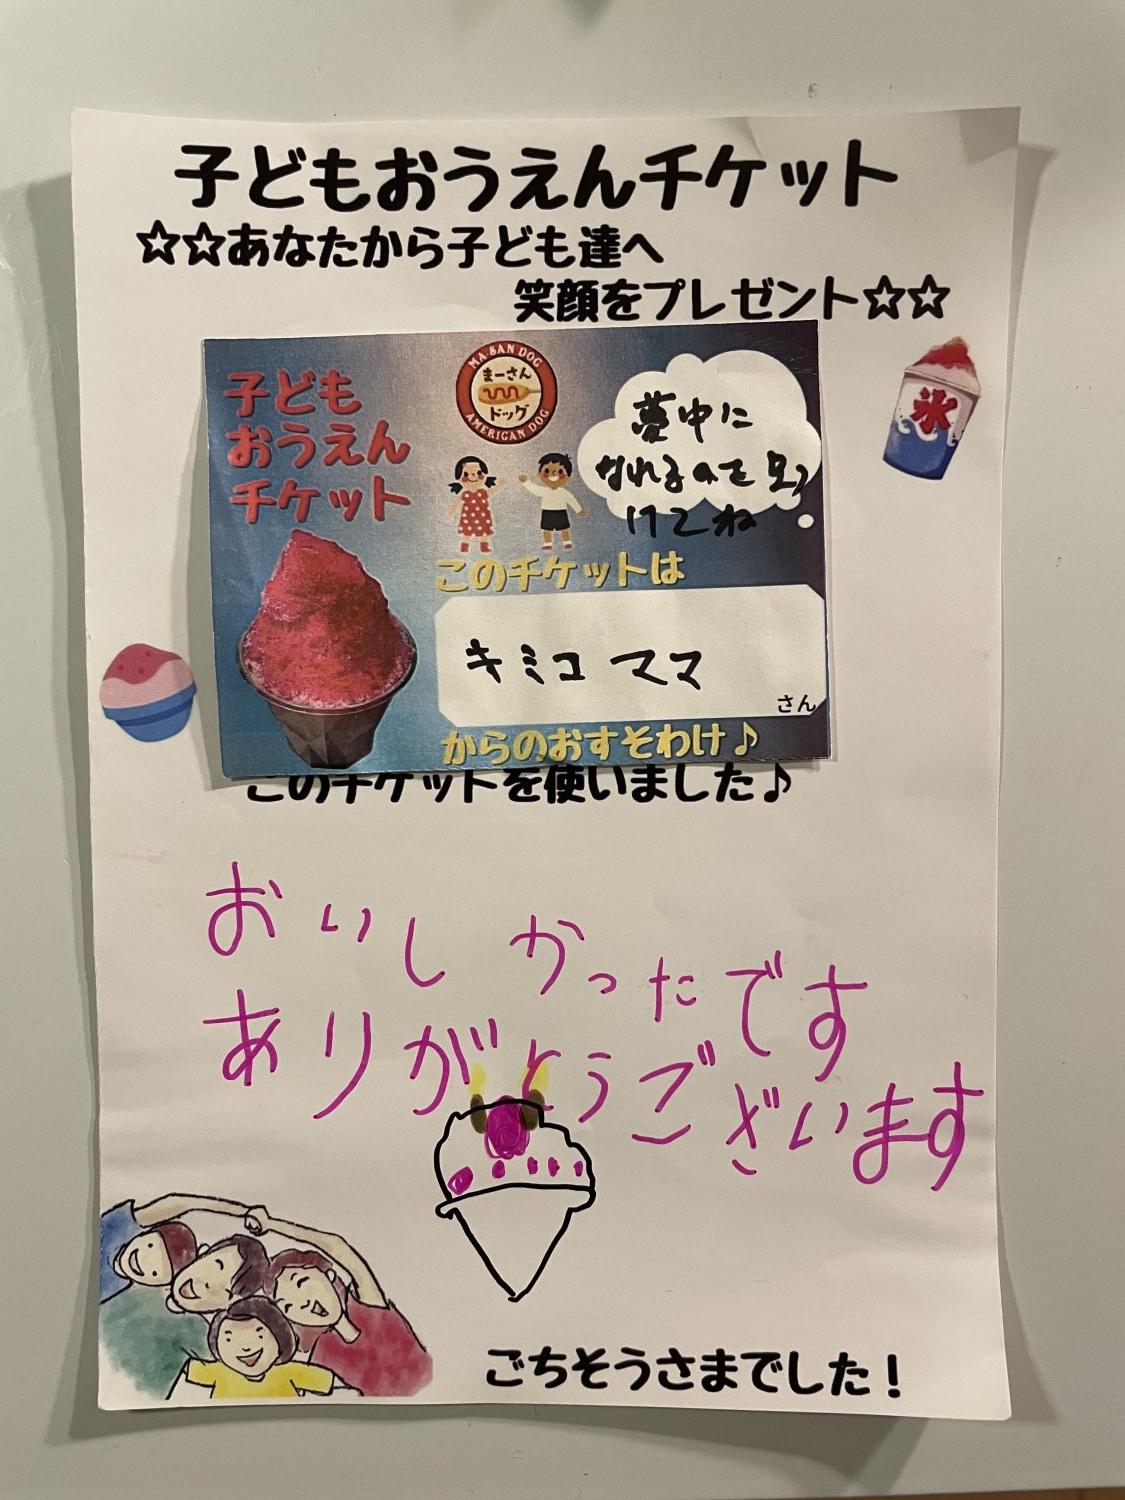 子どもおうえんチケット
☆☆あなたから子ども達へ
笑顔をプレゼント☆☆
子ども
おうえん
チケット
MA-SAN DOG
まーさん
ドッグ
AMERICAN DOG
夢中に
なれるのを見つ
けてね
氷
このチケットは
キミコ ママ
さん
からのおすそわけ♪
このチケットを使いました♪
おいしかったです
ありがとうございます
ごちそうさまでした！